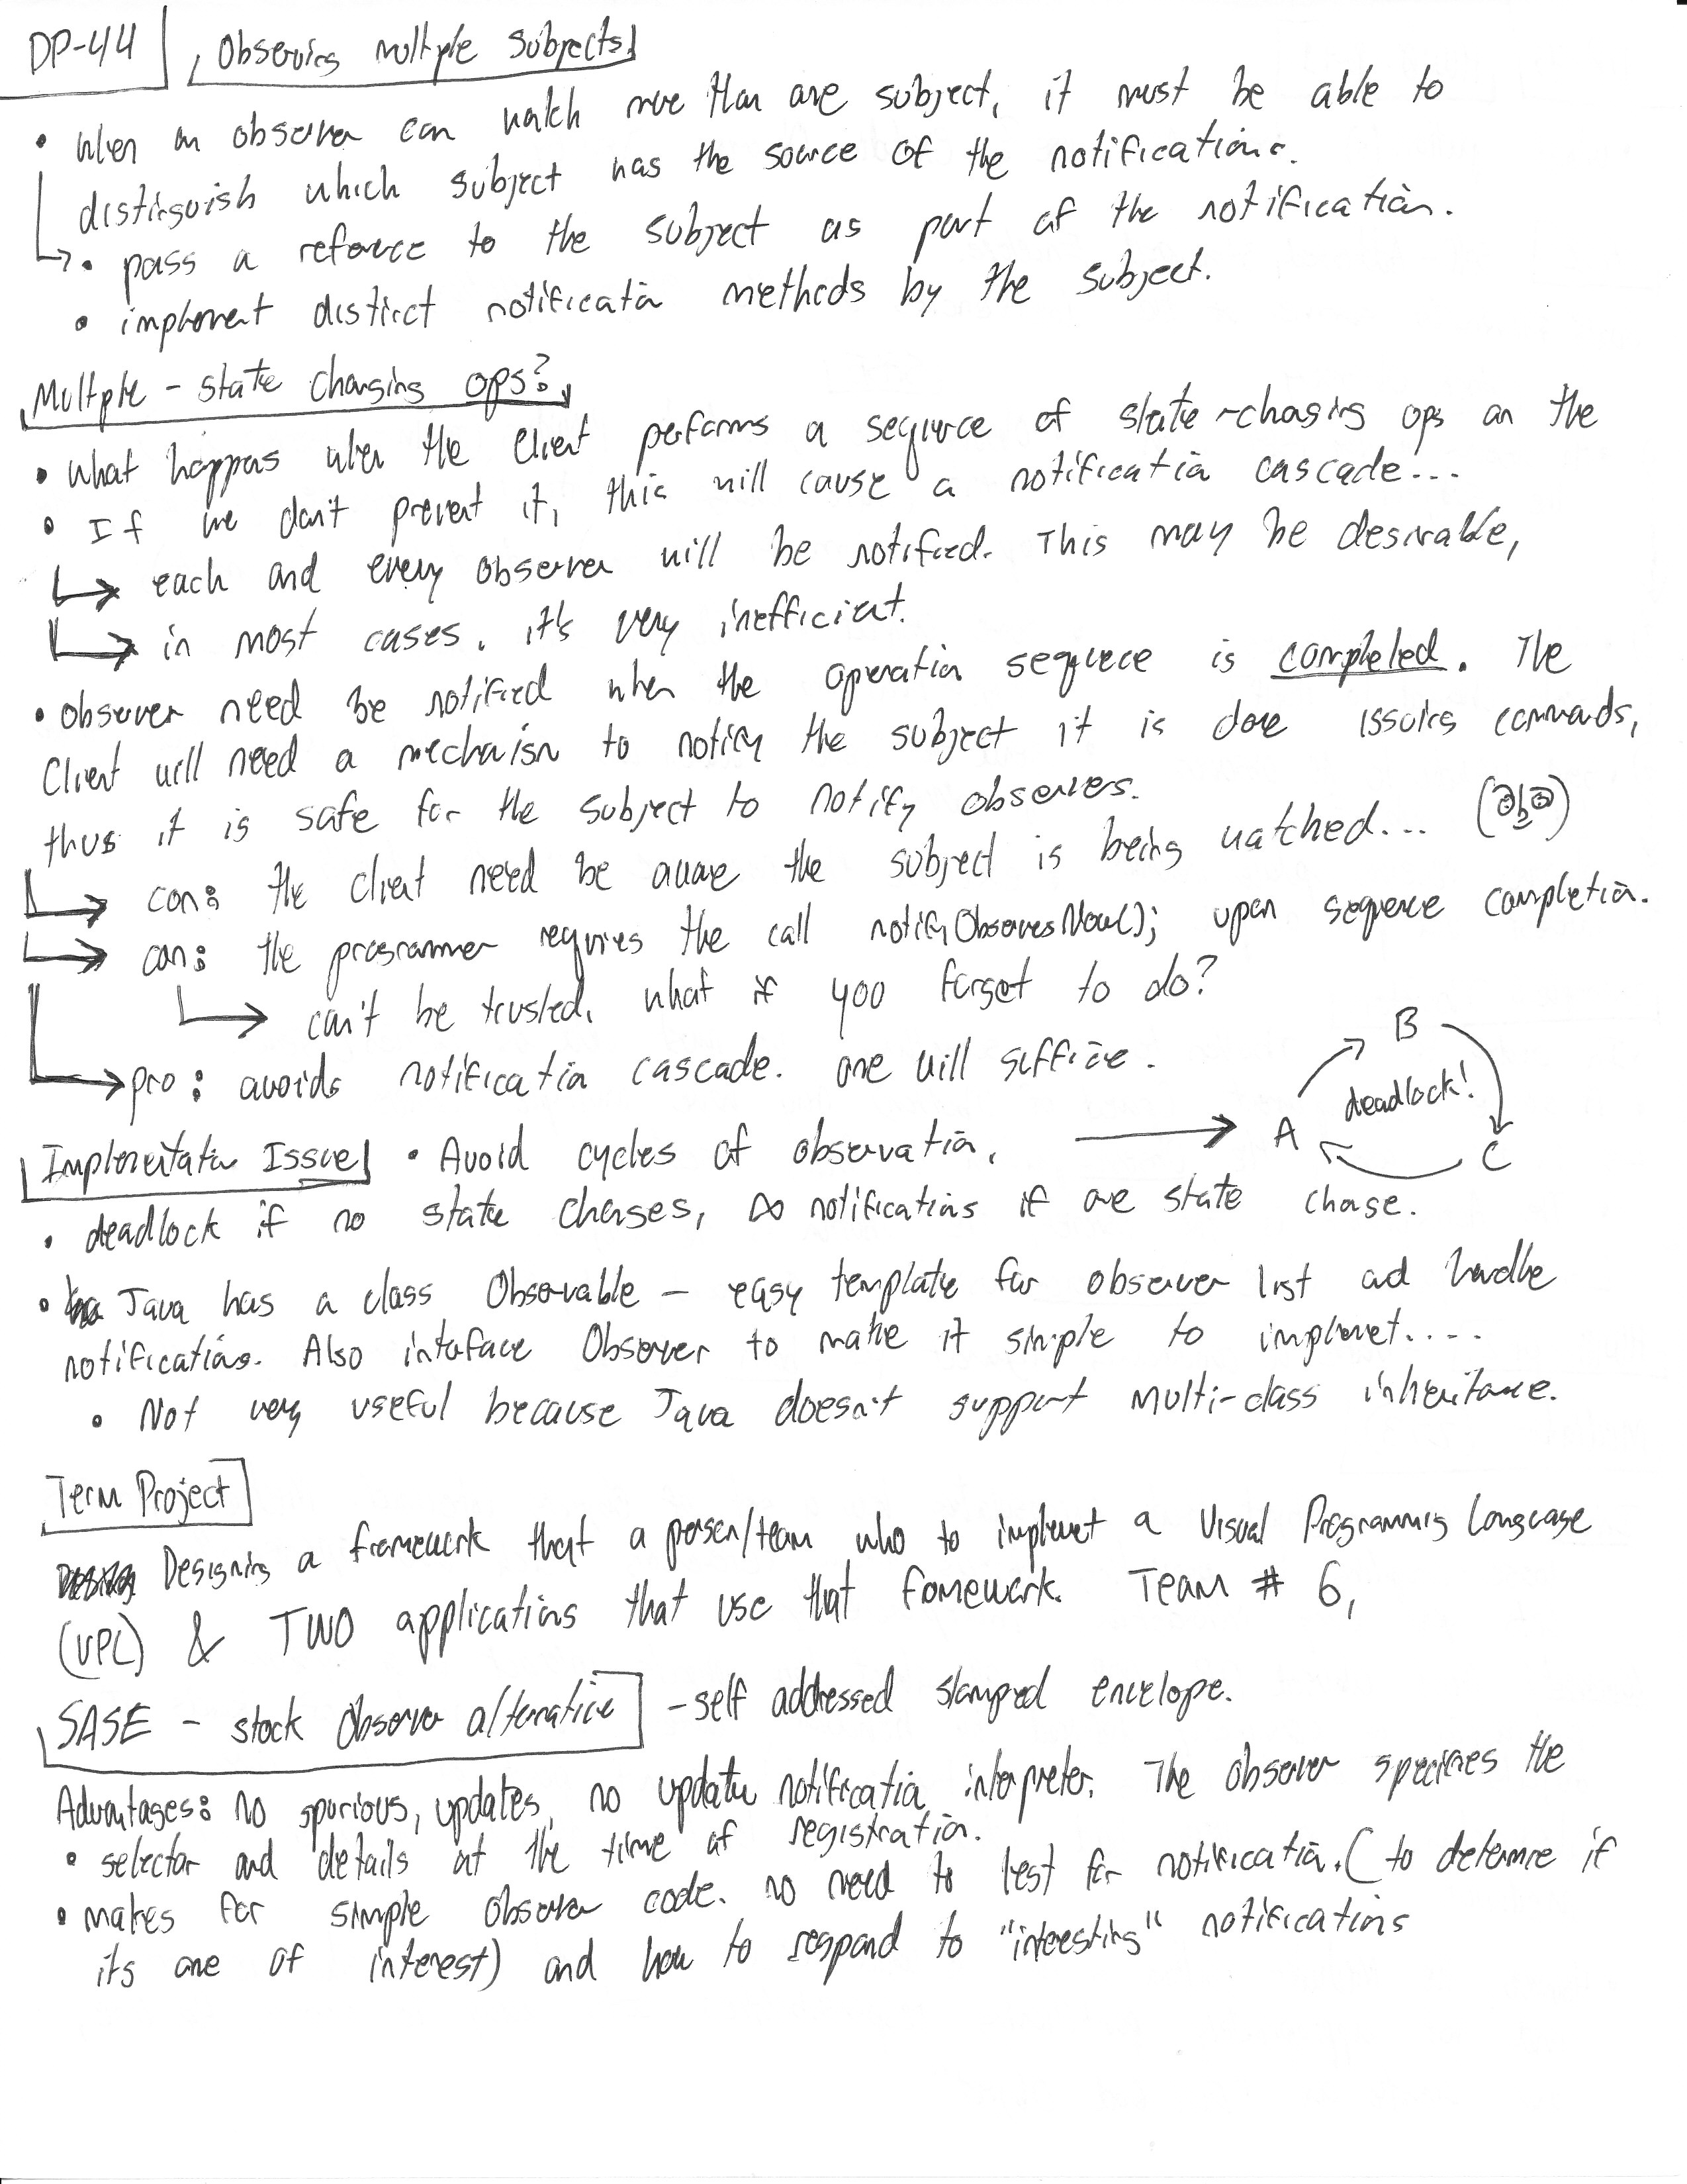 DP-44 Observing multiple subjects
• when an observer can watch more than one subject, it must be able to
distinguish which subject was the source of the notifications.
↳ • pass a reference to the subject as part of the notification.
• implement distinct notification methods by the subject.
Multiple - state changing ops?
• what happens when the client performs a sequence of state-changing ops on the
• If we don't prevent it, this will cause a notification cascade...
↳ each and every observer will be notified. This may be desirable,
↳ in most cases, it's very inefficient.
• observer need be notified when the operation sequence is completed. The
Client will need a mechanism to notify the subject it is done issuing commands,
thus it is safe for the subject to notify observers.
↳ con: the client need be aware the subject is being watched...
↳ con: the programmer requires the call notifyObserversNow(); upon sequence completion.
↳ can't be trusted, what if you forget to do?
↳ pro: avoids notification cascade. one will suffice.
A B C deadlock!
Implementation Issue • Avoid cycles of observation, →
• deadlock if no state changes, ∞ notifications if one state change.
• Java has a class Observable – easy template for observer list and handle
notifications. Also interface Observer to make it simple to implement....
• Not very useful because Java doesn't support multi-class inheritance.
Term Project
Designing a framework that a person/team who to implement a Visual Programming Language
(VPL) & TWO applications that use that framework. Team # 6,
SASE - stock observer alternative - self addressed stamped envelope.
Advantages: no spurious, updates, no update notification interpreter. The observer specifies the
• selector and details at the time of registration.
• makes for simple observer code. no need to test for notification. (to determine if
its one of interest) and how to respond to "interesting" notifications